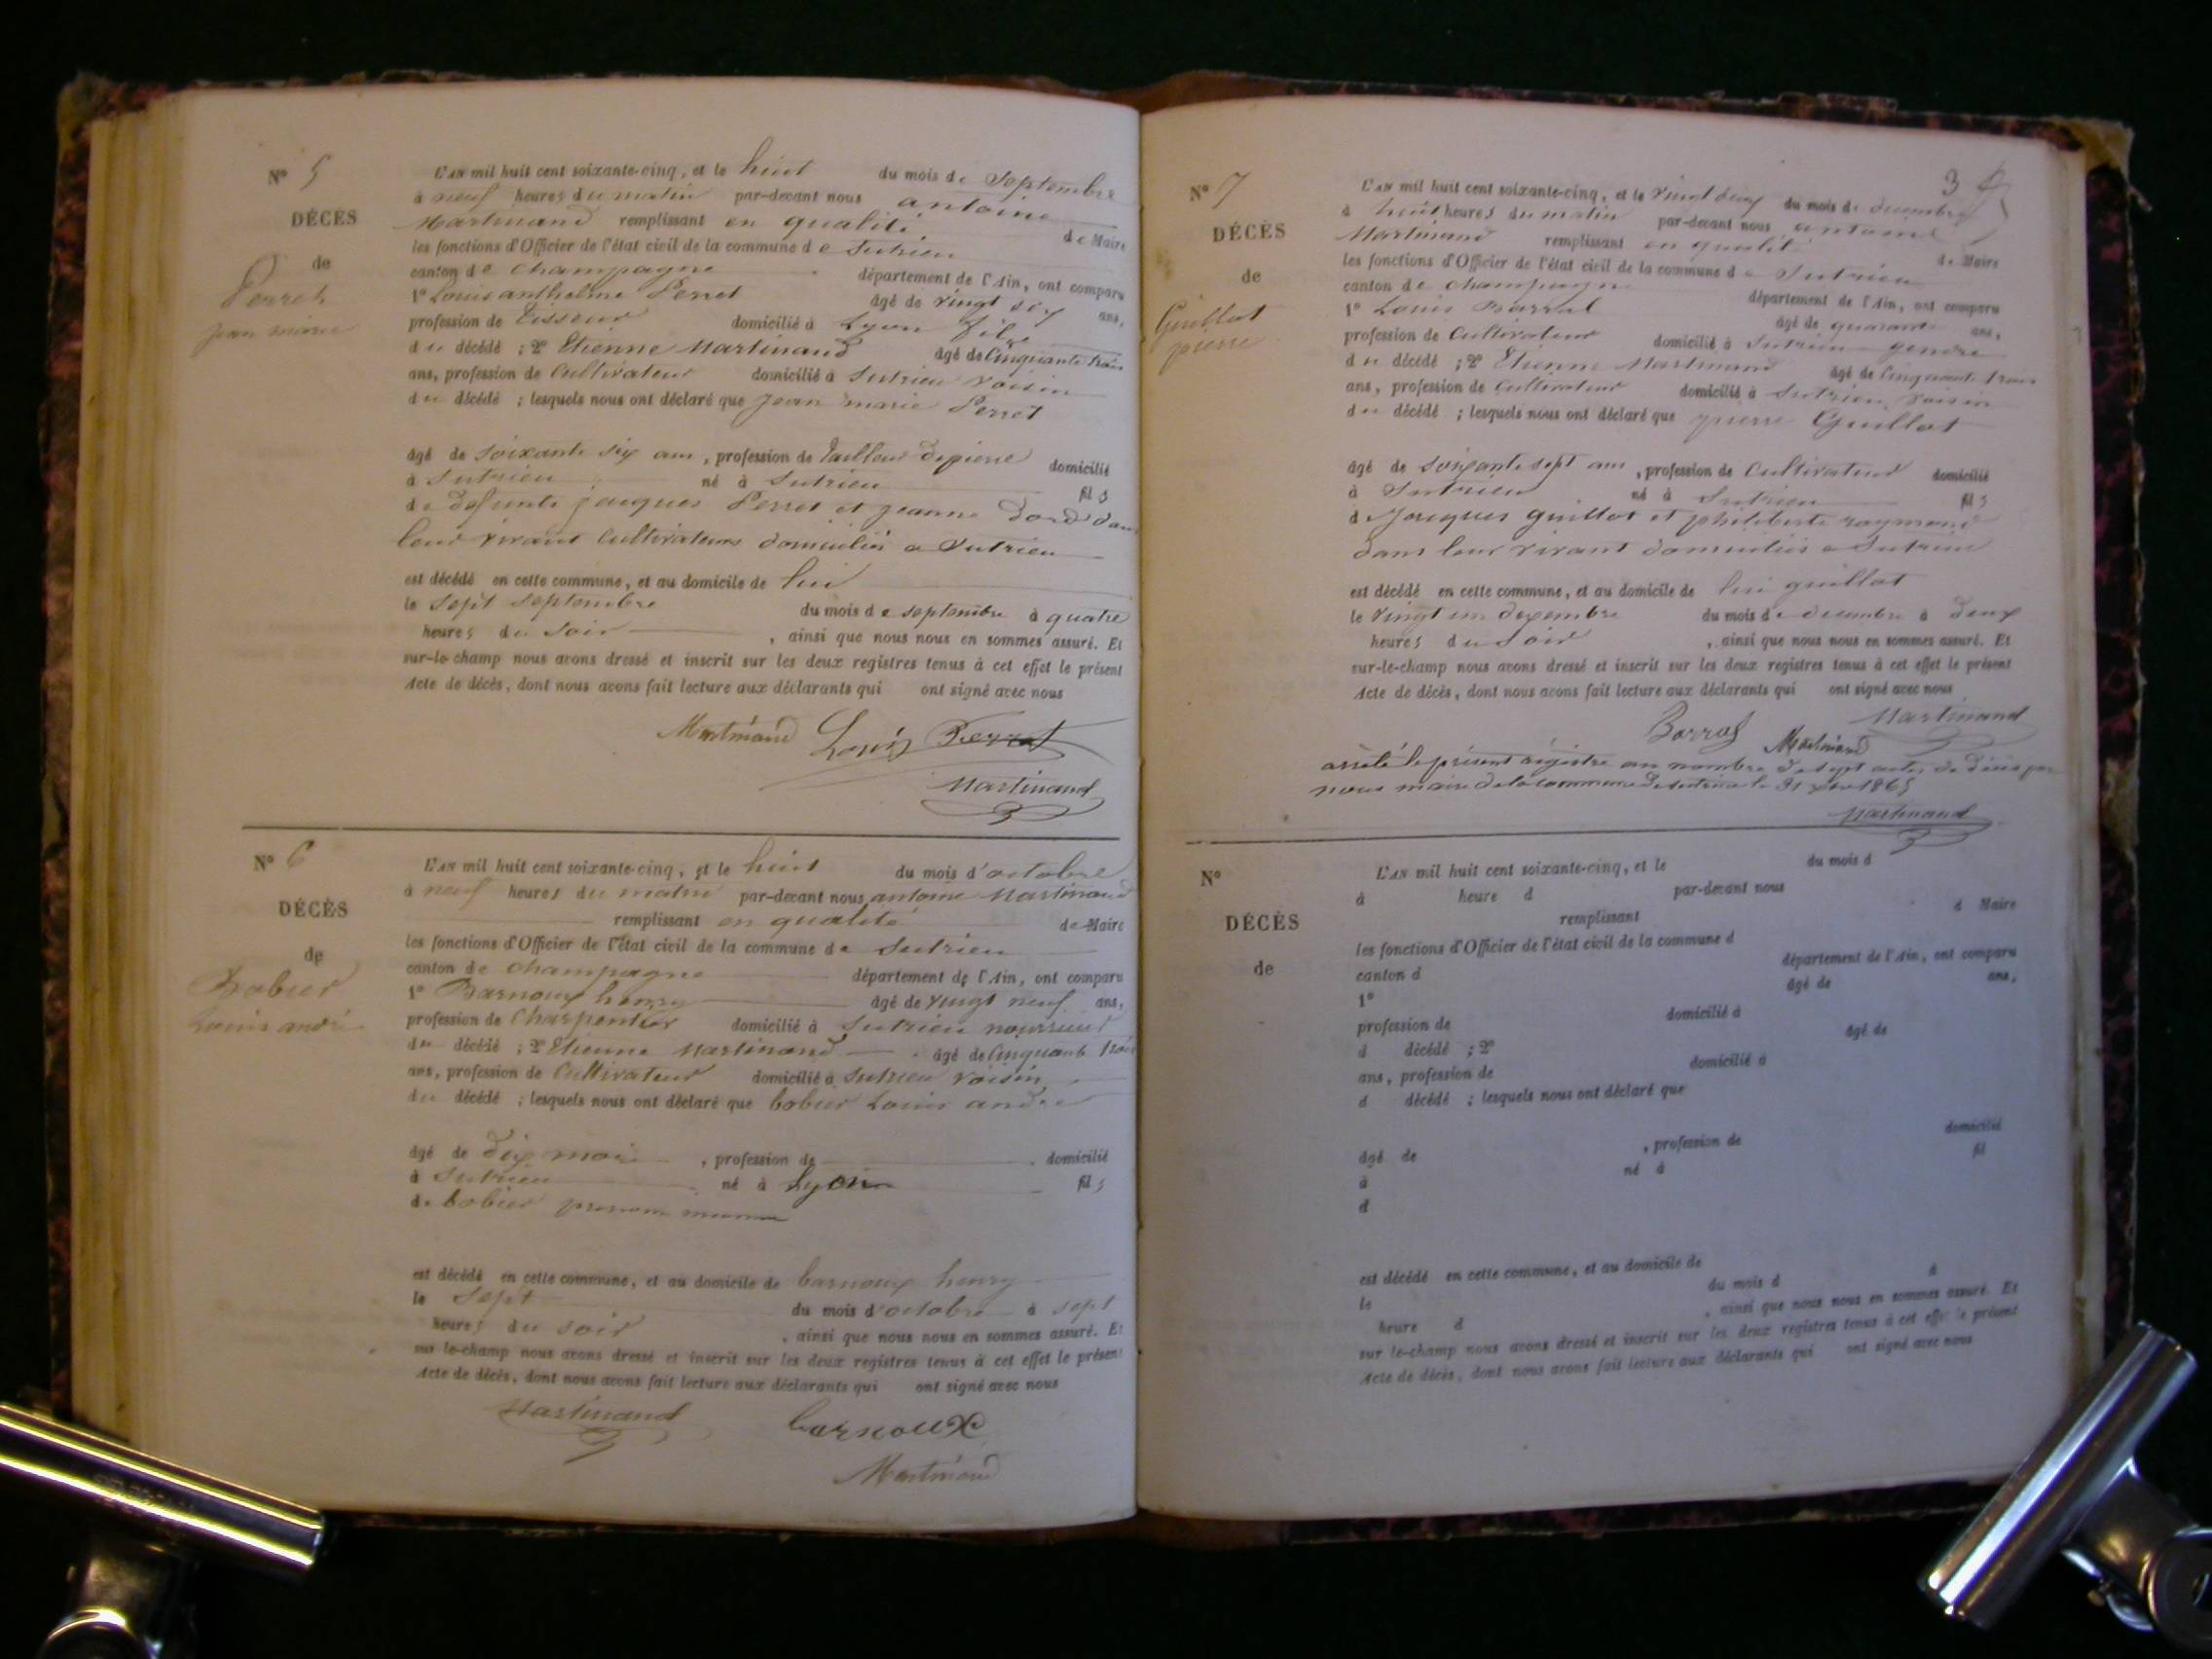 Nº 5
DÉCÈS
de
Perret
jean marie
L'AN mil huit cent soixante-cinq, et le huit du mois de Septembre
à neuf heures du matin par-devant nous antoine
Martinand remplissant en qualité de Maire
les fonctions d'Officier de l'état civil de la commune de Sutrieu
canton de Champagne département de l'Ain, ont comparu
1º Louis anthelme Perret âgé de vingt six ans,
profession de tisseur domicilié à Lyon fils
du décédé ; 2º Etienne Martinand âgé de Cinquante trois
ans, profession de Cultivateur domicilié à Sutrieu voisin
du décédé ; lesquels nous ont déclaré que Jean marie Perret
âgé de soixante six ans, profession de tailleur de pierre domicilié
à Sutrieu né à Sutrieu fils
de defunts jacques Perret et jeanne Dord dans
leur vivant Cultivateurs domiciliés a Sutrieu
est décédé en cette commune, et au domicile de lui
le sept septembre du mois de septembre à quatre
heures du Soir, ainsi que nous nous en sommes assuré. Et
sur-le-champ nous avons dressé et inscrit sur les deux registres tenus à cet effet le présent
Acte de décès, dont nous avons fait lecture aux déclarants qui ont signé avec nous
Martinand Louis Perret
Martinand
Nº 6
DÉCÈS
de
Bobier
Louis andré
L'AN mil huit cent soixante-cinq, et le huit du mois d'octobre
à neuf heures du matin par-devant nous antoine Martinand
remplissant en qualité de Maire
les fonctions d'Officier de l'état civil de la commune de Sutrieu
canton de Champagne département de l'Ain, ont comparu
1º Barnoux henry âgé de vingt neuf ans,
profession de Charpentier domicilié à Sutrieu
du décédé ; 2º Etienne Martinand âgé de Cinquante trois
ans, profession de Cultivateur domicilié à Sutrieu voisin
du décédé ; lesquels nous ont déclaré que bobier Louis andré
âgé de dix mois, profession de domicilié
à Sutrieu né à Lyon fils
de bobier
est décédé en cette commune, et au domicile de barnoux henry
le sept du mois d'octobre à sept
heures du soir, ainsi que nous nous en sommes assuré. Et
sur-le-champ nous avons dressé et inscrit sur les deux registres tenus à cet effet le présent
Acte de décès, dont nous avons fait lecture aux déclarants qui ont signé avec nous
Martinand barnoux
Martinand
3
Nº 7
DÉCÈS
de
Guillot
pierre
L'AN mil huit cent soixante-cinq, et le vingt deux du mois de decembre
à huit heures du matin par-devant nous antoine
Martinand remplissant en qualité de Maire
les fonctions d'Officier de l'état civil de la commune de Sutrieu
canton de Champagne département de l'Ain, ont comparu
1º Louis Barral âgé de quarante ans,
profession de Cultivateur domicilié à Sutrieu gendre
du décédé ; 2º Etienne Martinand âgé de Cinquante trois
ans, profession de Cultivateur domicilié à Sutrieu voisin
du décédé ; lesquels nous ont déclaré que pierre Guillot
âgé de soixante sept ans, profession de Cultivateur domicilié
à Sutrieu né à Sutrieu fils
d Jacques guillot et philiberte raymond
dans leur vivant domiciliés a Sutrieu
est décédé en cette commune, et au domicile de lui guillot
le vingt un decembre du mois de decembre à deux
heures du soir, ainsi que nous nous en sommes assuré. Et
sur-le-champ nous avons dressé et inscrit sur les deux registres tenus à cet effet le présent
Acte de décès, dont nous avons fait lecture aux déclarants qui ont signé avec nous
Barral Martinand
Martinand
arrêté le présent régistre au nombre de sept actes de décès par
nous maire de la commune de Sutrieu le 31 Xbre 1865
Martinand
Nº
DÉCÈS
de
L'AN mil huit cent soixante-cinq, et le du mois d
à heure d par-devant nous
remplissant d Maire
les fonctions d'Officier de l'état civil de la commune d
canton d département de l'Ain, ont comparu
1º âgé de ans,
profession de domicilié à
d décédé ; 2º âgé de
ans, profession de domicilié à
d décédé ; lesquels nous ont déclaré que
âgé de , profession de domicilié
à né à fil
d
est décédé en cette commune, et au domicile de
le du mois d à
heure d , ainsi que nous nous en sommes assuré. Et
sur le-champ nous avons dressé et inscrit sur les deux registres tenus à cet effet le présent
Acte de décès, dont nous avons fait lecture aux déclarants qui ont signé avec nous